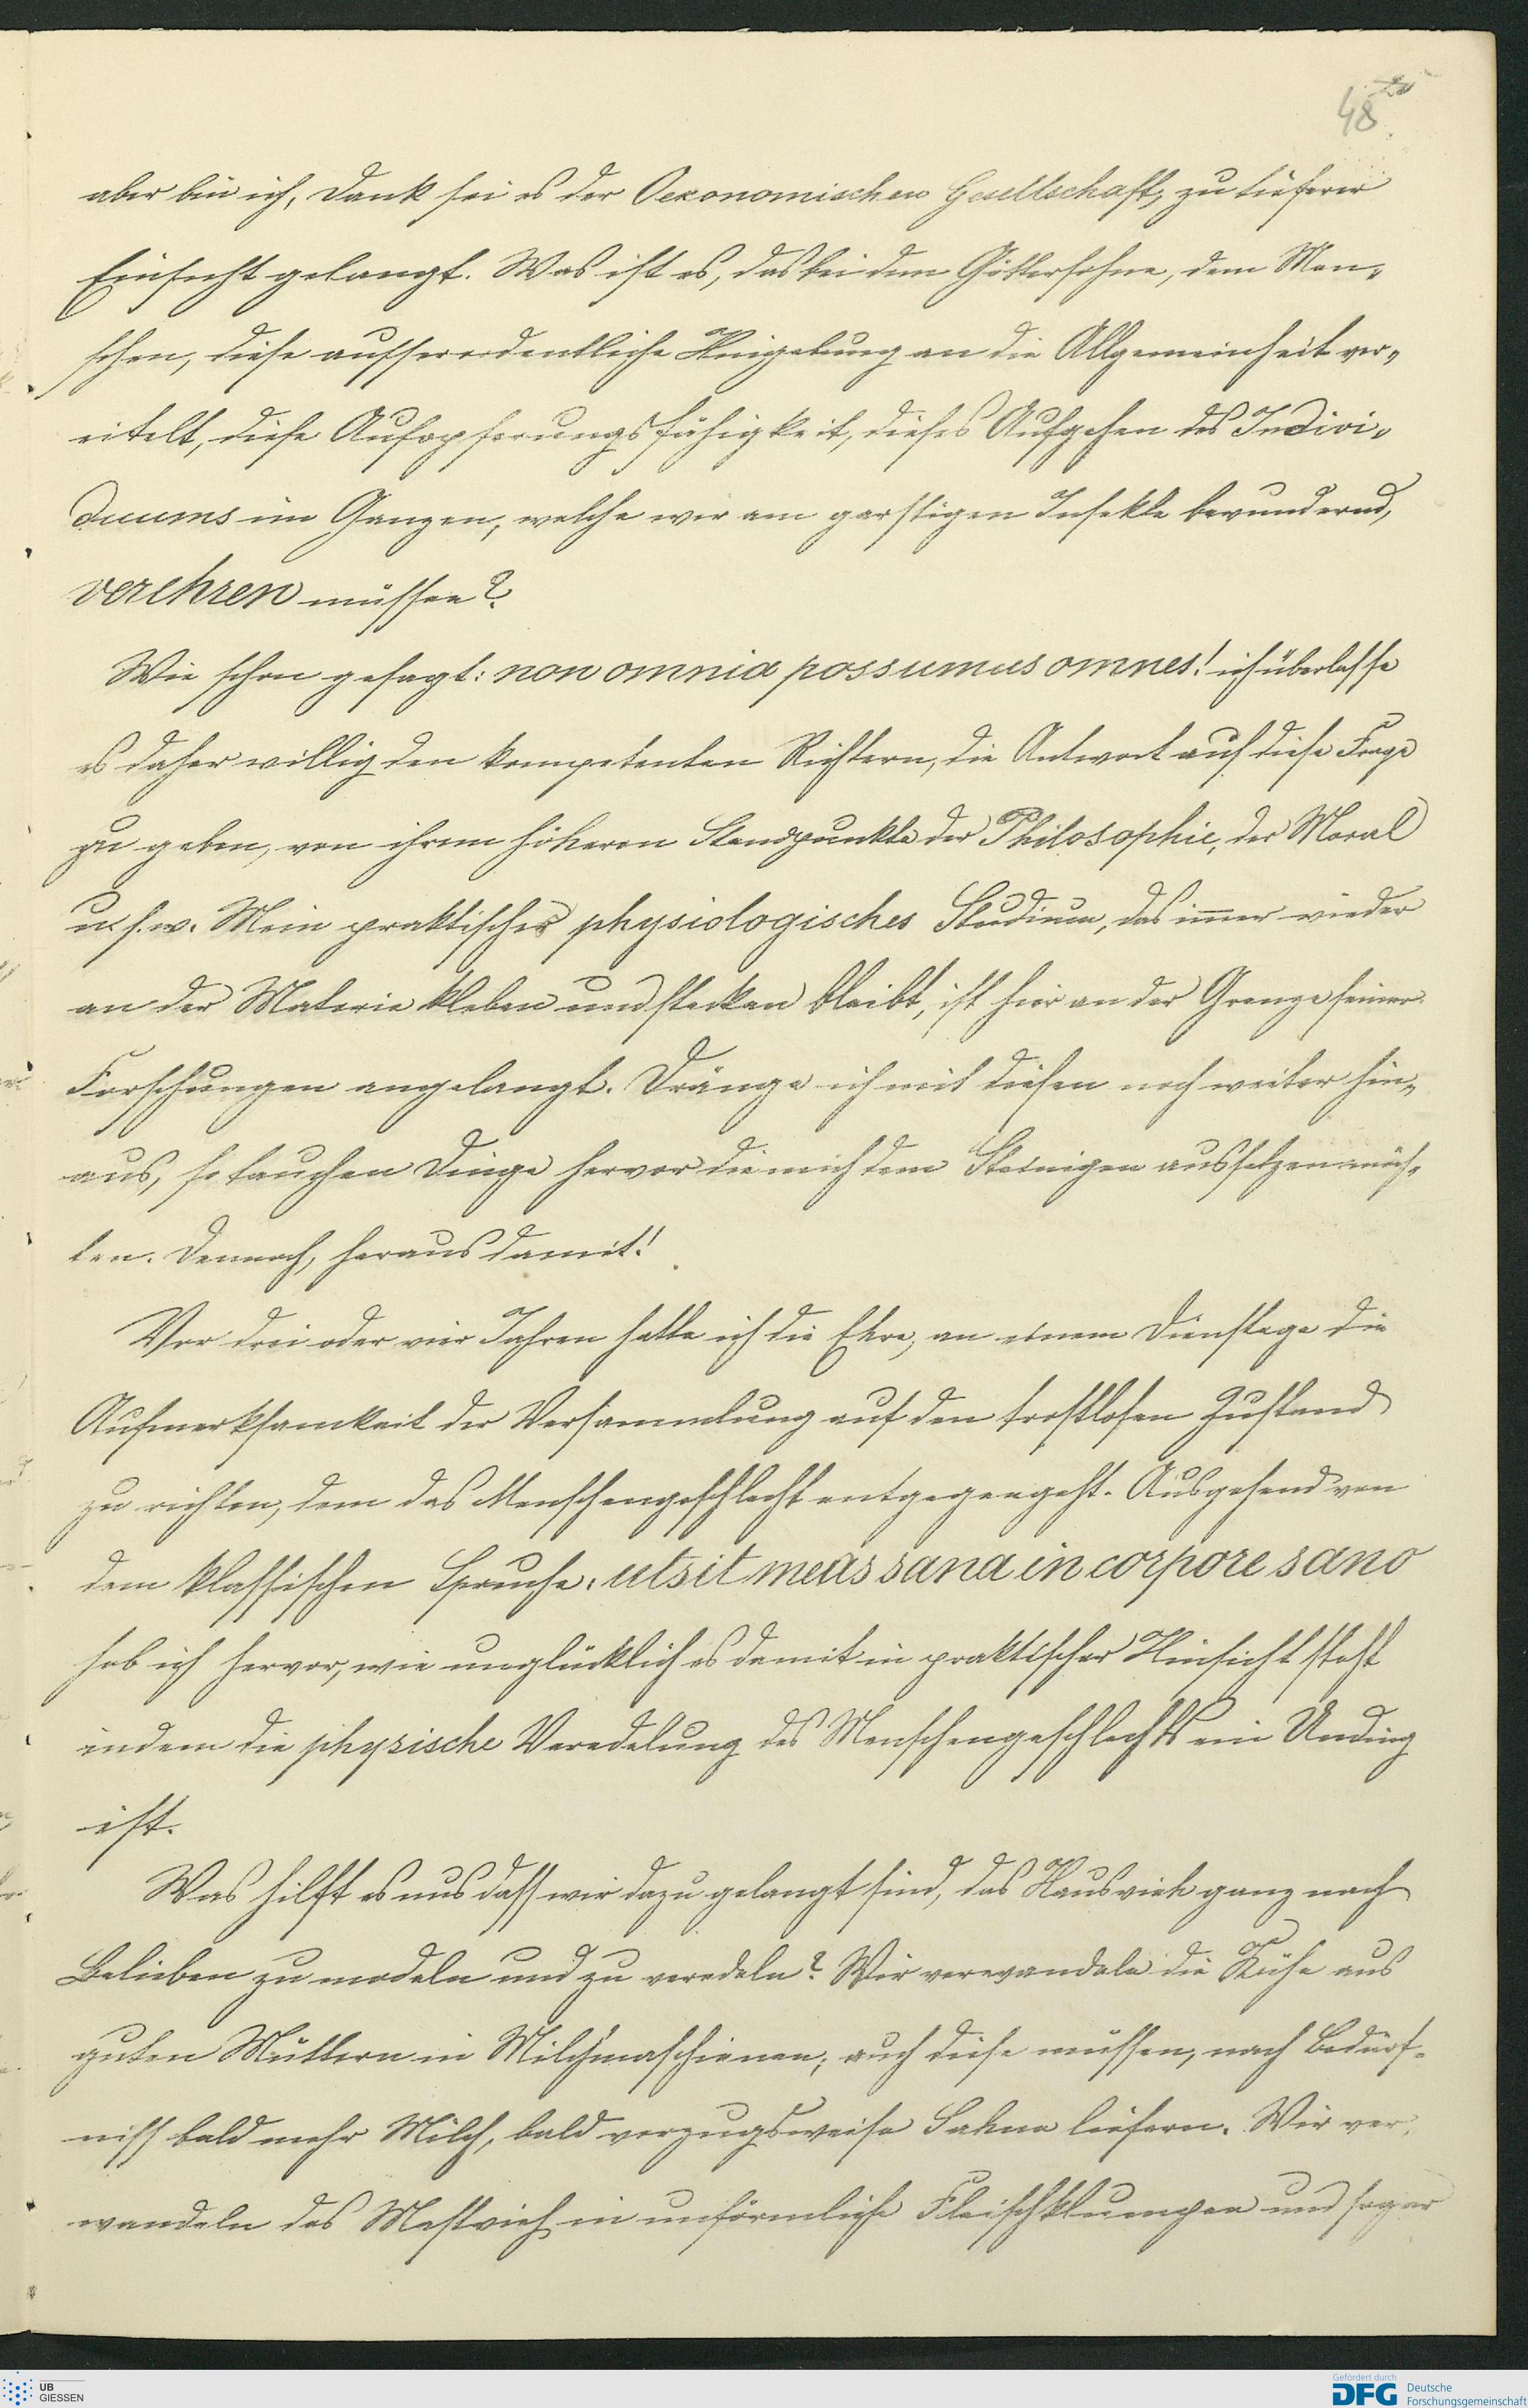 48
aber bin ich, Dank sei es der Oekonomischen Gesellschaft, zu tieferer
Einsicht gelangt. Was ist es, das bei dem Göttersohne, dem Men-
schen, diese ausserordentliche Hingebung an die Allgemeinheit ver-
eitelt, diese Aufopferungsfähigkeit, dieses Aufgehen des Indivi-
duums im Ganzen, welche wir am garstigen Insekte bewundernd,
verehren müssen?
Wie schon gesagt: non omnia possumus omnes! ich überlasse
es daher willig den kompetenten Richtern, die Antwort auf diese Frage
zu geben, von ihrem höheren Standpunkte der Philosophie, der Moral
u. s. w. Mein praktisches physiologisches Studium, das immer wieder
an der Materie kleben und stecken bleibt, ist hier an der Grenze seiner
Forschungen angelangt. Dränge ich mit diesen noch weiter hin-
aus, so tauchen Dinge hervor die mich dem Steinigen aussetzen möch-
ten. Dennoch, heraus damit!
Vor drei oder vier Jahren hatte ich die Ehre, an einem Dienstage die
Aufmerksamkeit der Versammlung auf den trostlosen Zustand
zu richten, dem das Menschengeschlecht entgegengeht. Ausgehend von
dem klassischen Spruche: ut sit mens sana in corpore sano
hob ich hervor, wie unglücklich es damit in praktischer Hinsicht steht
indem die physische Veredelung des Menschengeschlechts ein Unding
ist.
Was hilft es uns dass wir dazu gelangt sind, das Hausvieh ganz nach
Belieben zu modeln und zu veredeln? Wir verwandeln die Kühe aus
guten Müttern in Milchmaschienen; auch diese müssen, nach Bedürf-
niss bald mehr Milch, bald vorzugsweise Sahne liefern. Wir ver-
wandeln das Mastvieh in unförmliche Fleischklumpen und sogar
UB
GIESSEN
Gefördert durch
DFG Deutsche
Forschungsgemeinschaft